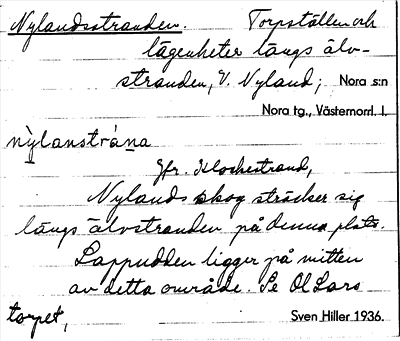 Nylandsstranden. Torpställen och
lägenheter längs älv-
stranden, V. Nyland; Nora s:n
Nora tg., Västernorrl. l.
nỳlanstrána
Jfr. Klockestrand,
Nylands skog sträcker sig
längs älvstranden på denna plats.
Lappudden ligger på mitten
av detta område. Se Ol Lars
torpet, Sven Hiller 1936.